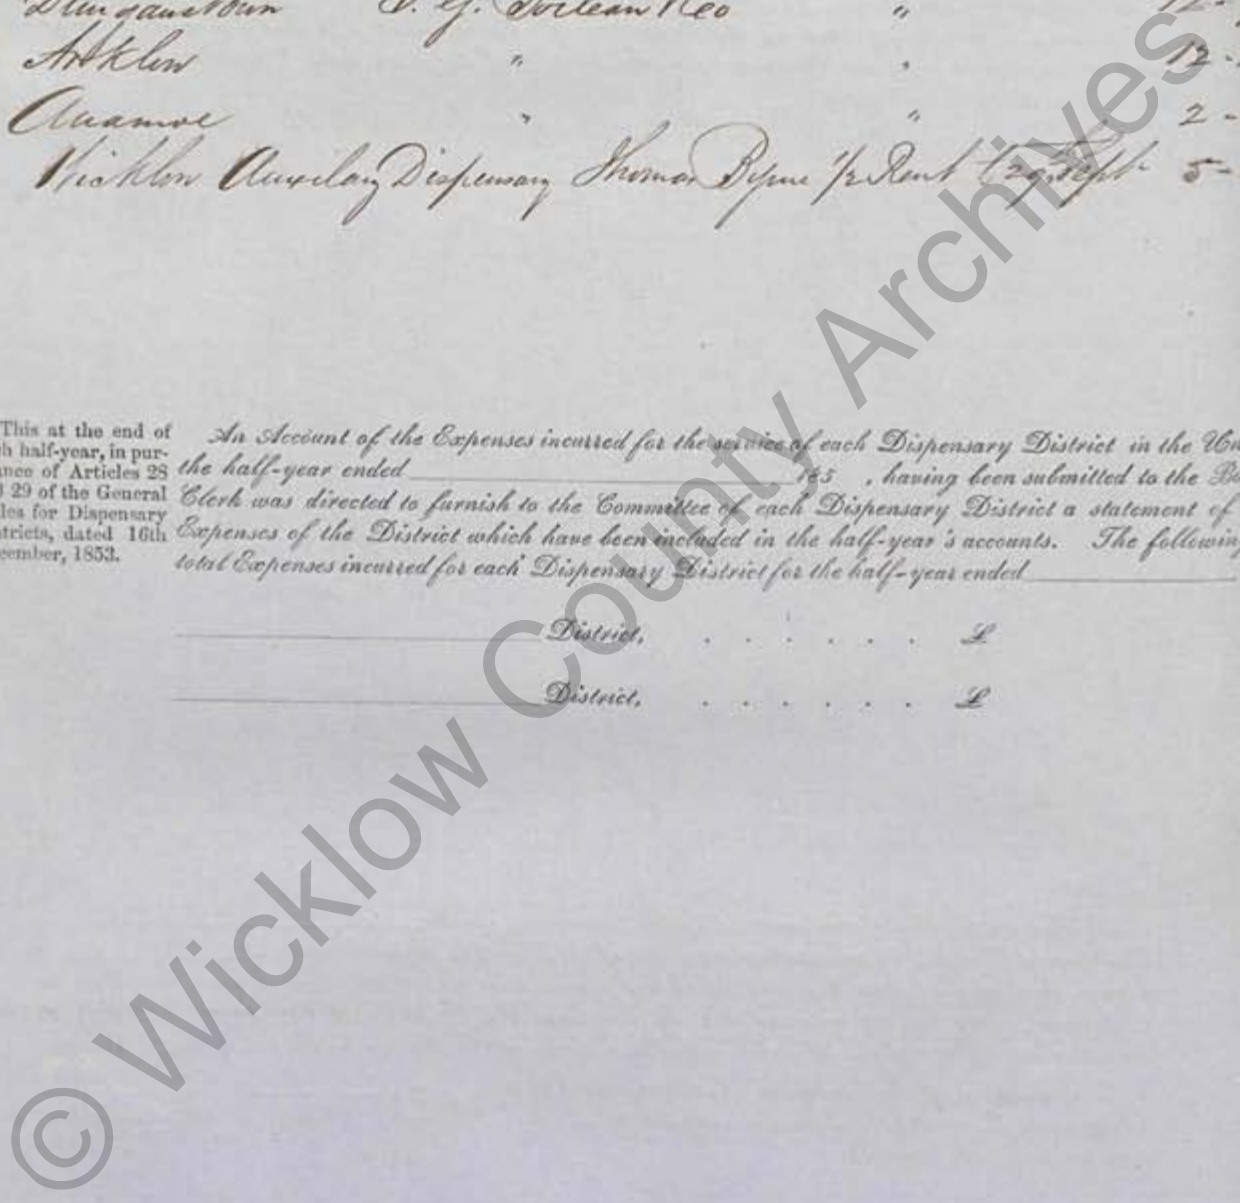 Dunganstown " "
Arklow " " 12 -
Anamoe " " 2 -
Wicklow Auxilary Dispensary Thomas Byrne ½ Rent 29 Sept 5 -
This at the end of
h half-year, in pur-
nce of Articles 28
29 of the General
les for Dispensary
tricts, dated 16th
cember, 1853.
An Account of the Expenses incurred for the service of each Dispensary District in the Un
the half-year ended 185 , having been submitted to the Bo
Clerk was directed to furnish to the Committee of each Dispensary District a statement of
Expenses of the District which have been included in the half-year's accounts. The following
total Expenses incurred for each Dispensary District for the half-year ended
District, . . . . . . £
District, . . . . . . £
© Wicklow County Archives